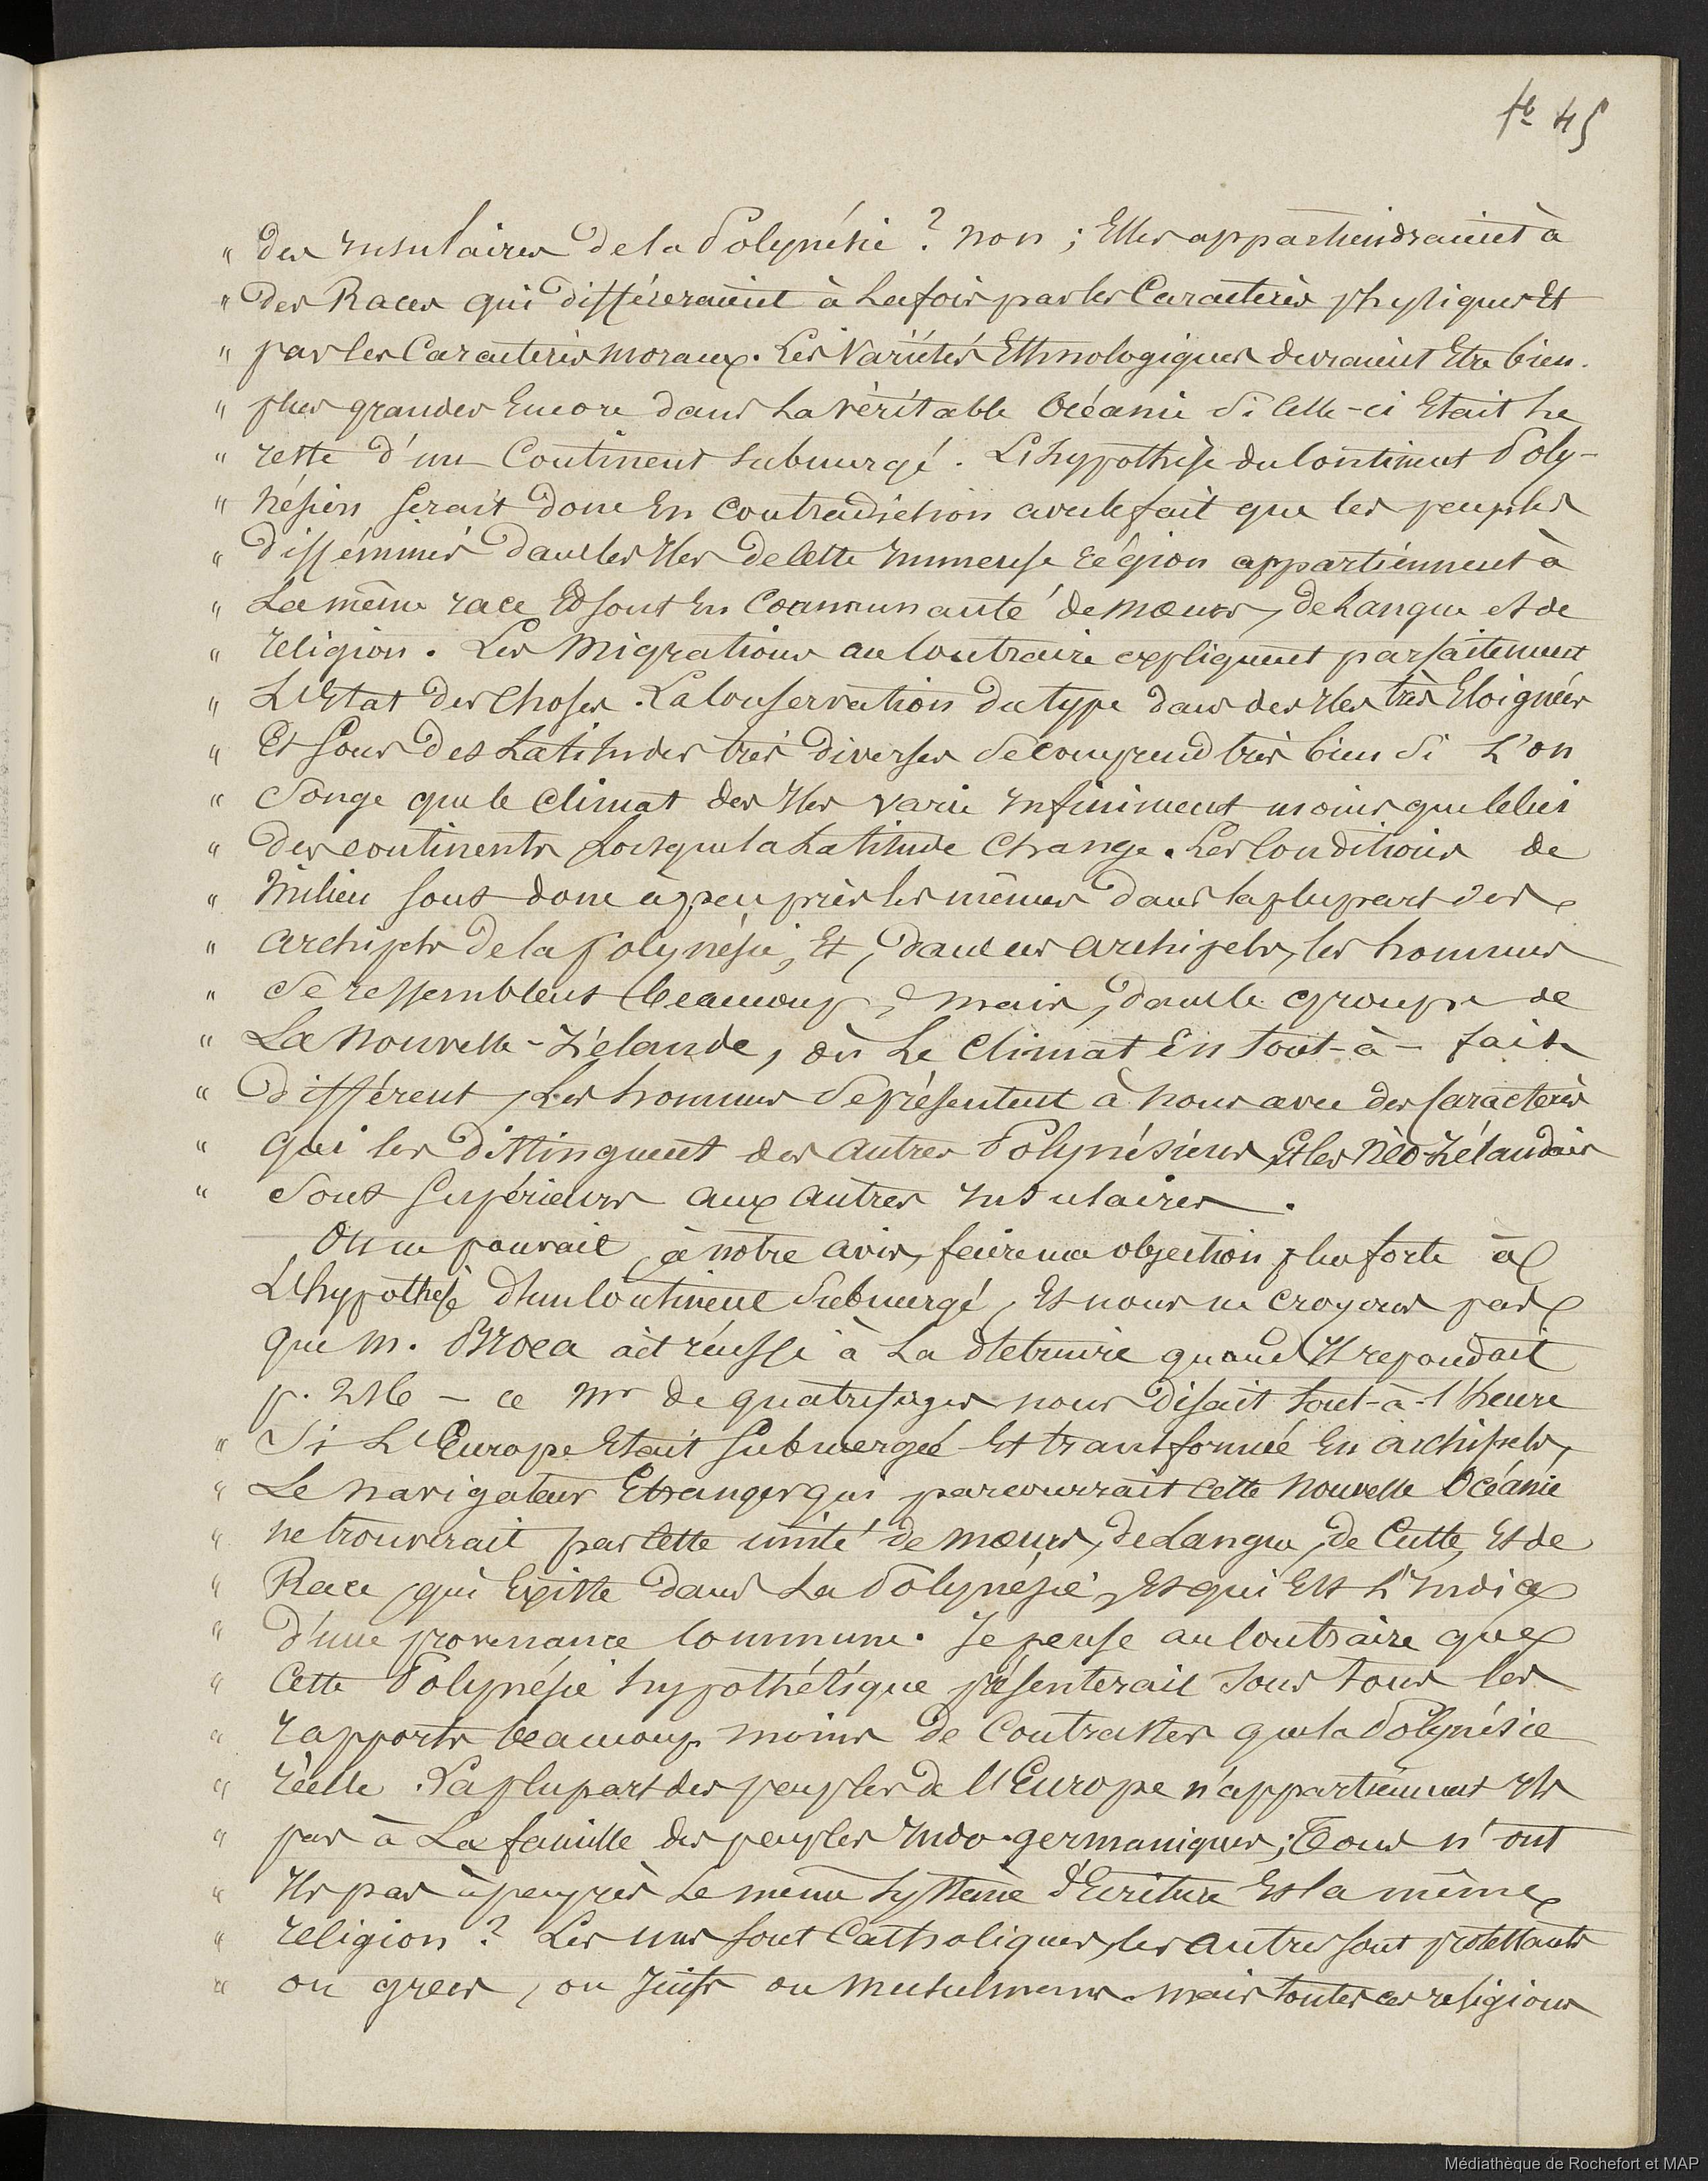 fo 45
" des Insulaires de la Polynésie ? non ; Elles appartiendraient à
" des Races qui différeraient à la fois par les Caractères physiques Et
" par les Caractères moraux. Les Variétés Ethnologiques devraient Etre bien
" plus grandes Encore dans la véritable Océanie Si Celle-ci Etait le
" reste d'un Continent submergé. L'hypothèse du Continent Poly-
" nésien serait donc En Contradiction avec le fait que les peuples
" disséminés dans les Iles de Cette Immense région appartiennent à
" La même race Et sont En Communauté de mœurs, de Langue et de
" religion. Les Migrations au Contraire expliquent parfaitement
" L'Etat des Choses. La Conservation du type dans des Iles très Eloignées
" Et Sous des Latitudes très diverses Se comprend très bien Si L'on
" Songe que le Climat des Iles varie Infiniment moins que Celui
" des continents Lorsque la Latitude Change. Les Conditions de
" Milieu sont donc à peu près les mêmes dans la plupart des
" Archipels de la polynésie, Et, dans ces Archipels, les hommes
" Se ressemblent beaucoup, mais, dans le groupe de
" La Nouvelle-Zélande, où Le Climat Est Tout-à-fait
" différent, Les hommes Se présentent à nous avec des Caractères
" qui les distinguent des Autres Polynésiens, Et les Néo-Zélandais
" Sont Supérieurs aux autres Insulaires.
On ne pouvait, à notre avis, faire une objection plus forte à
L'hypothèse d'un Continent Submergé, Et nous ne croyons pas
que M. Broca ait réussi à La détruire quand Il repondait
p. 216 – ce Mr de quatrefages nous disait tout-à-l'heure
" Si L'Europe Etait Submergée Et transformée En archipels,
" Le Navigateur Etranger qui parcourrait Cette Nouvelle Océanie
" ne trouverait pas Cette unité de mœurs, de Langue, de Culte, Et de
" Race, qui Existe dans La Polynésie, Et qui Est L'Indice
" d'une provenance Commune. Je pense au Contraire que
" Cette Polynésie hypothétique présenterait Sous Tous les
" rapports beaucoup moins de Contrastes que la Polynésie
" réelle. La plupart des peuples de l'Europe n'appartiennent Ils
" pas à La famille des peuples Indo-germaniques ; Tous n'ont
" Ils pas à peu près Le même Système d'Ecriture Et la même
" religion ? Les uns sont Catholiques, les Autres sont protestants
" ou grecs, ou Juifs ou Musulmans. mais toutes ces religions
Médiathèque de Rochefort et MAP